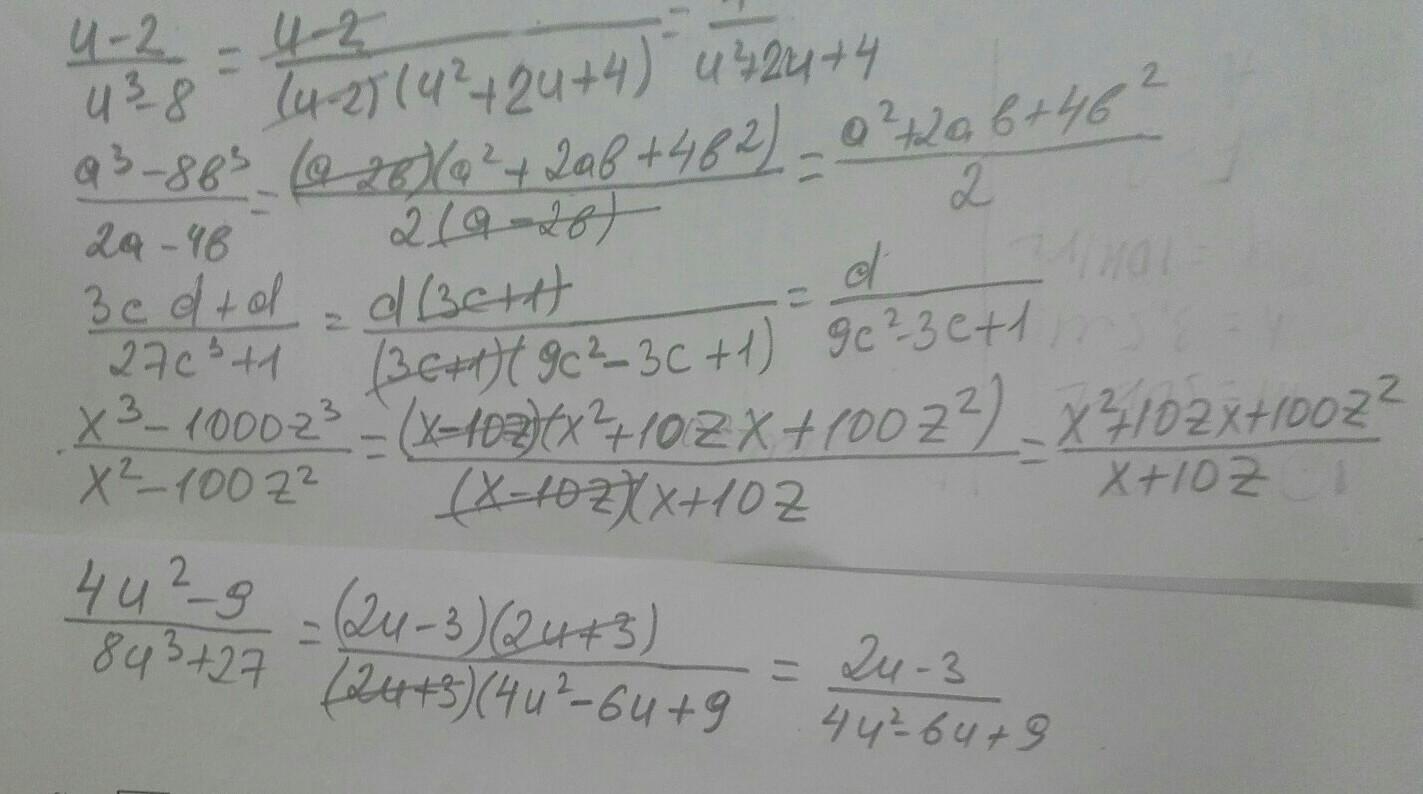 u-2/u³-8 = u-2/(u-2)(u²+2u+4) = 1/u²+2u+4
a³-8b³/2a-4b = (a-2b)(a²+2ab+4b²)/2(a-2b) = a²+2ab+4b²/2
3cd+d/27c³+1 = d(3c+1)/(3c+1)(9c²-3c+1) = d/9c²-3c+1
x³-1000z³/x²-100z² = (x-10z)(x²+10zx+100z²)/(x-10z)(x+10z = x²+10zx+100z²/x+10z
4u²-9/8u³+27 = (2u-3)(2u+3)/(2u+3)(4u²-6u+9 = 2u-3/4u²-6u+9